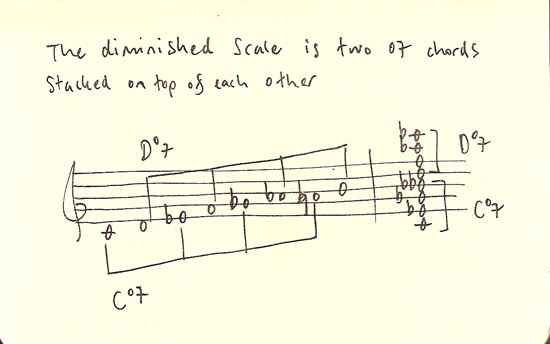 The diminished Scale is two o7 chords
Stacked on top of each other
D°7
D°7
C°7
C°7